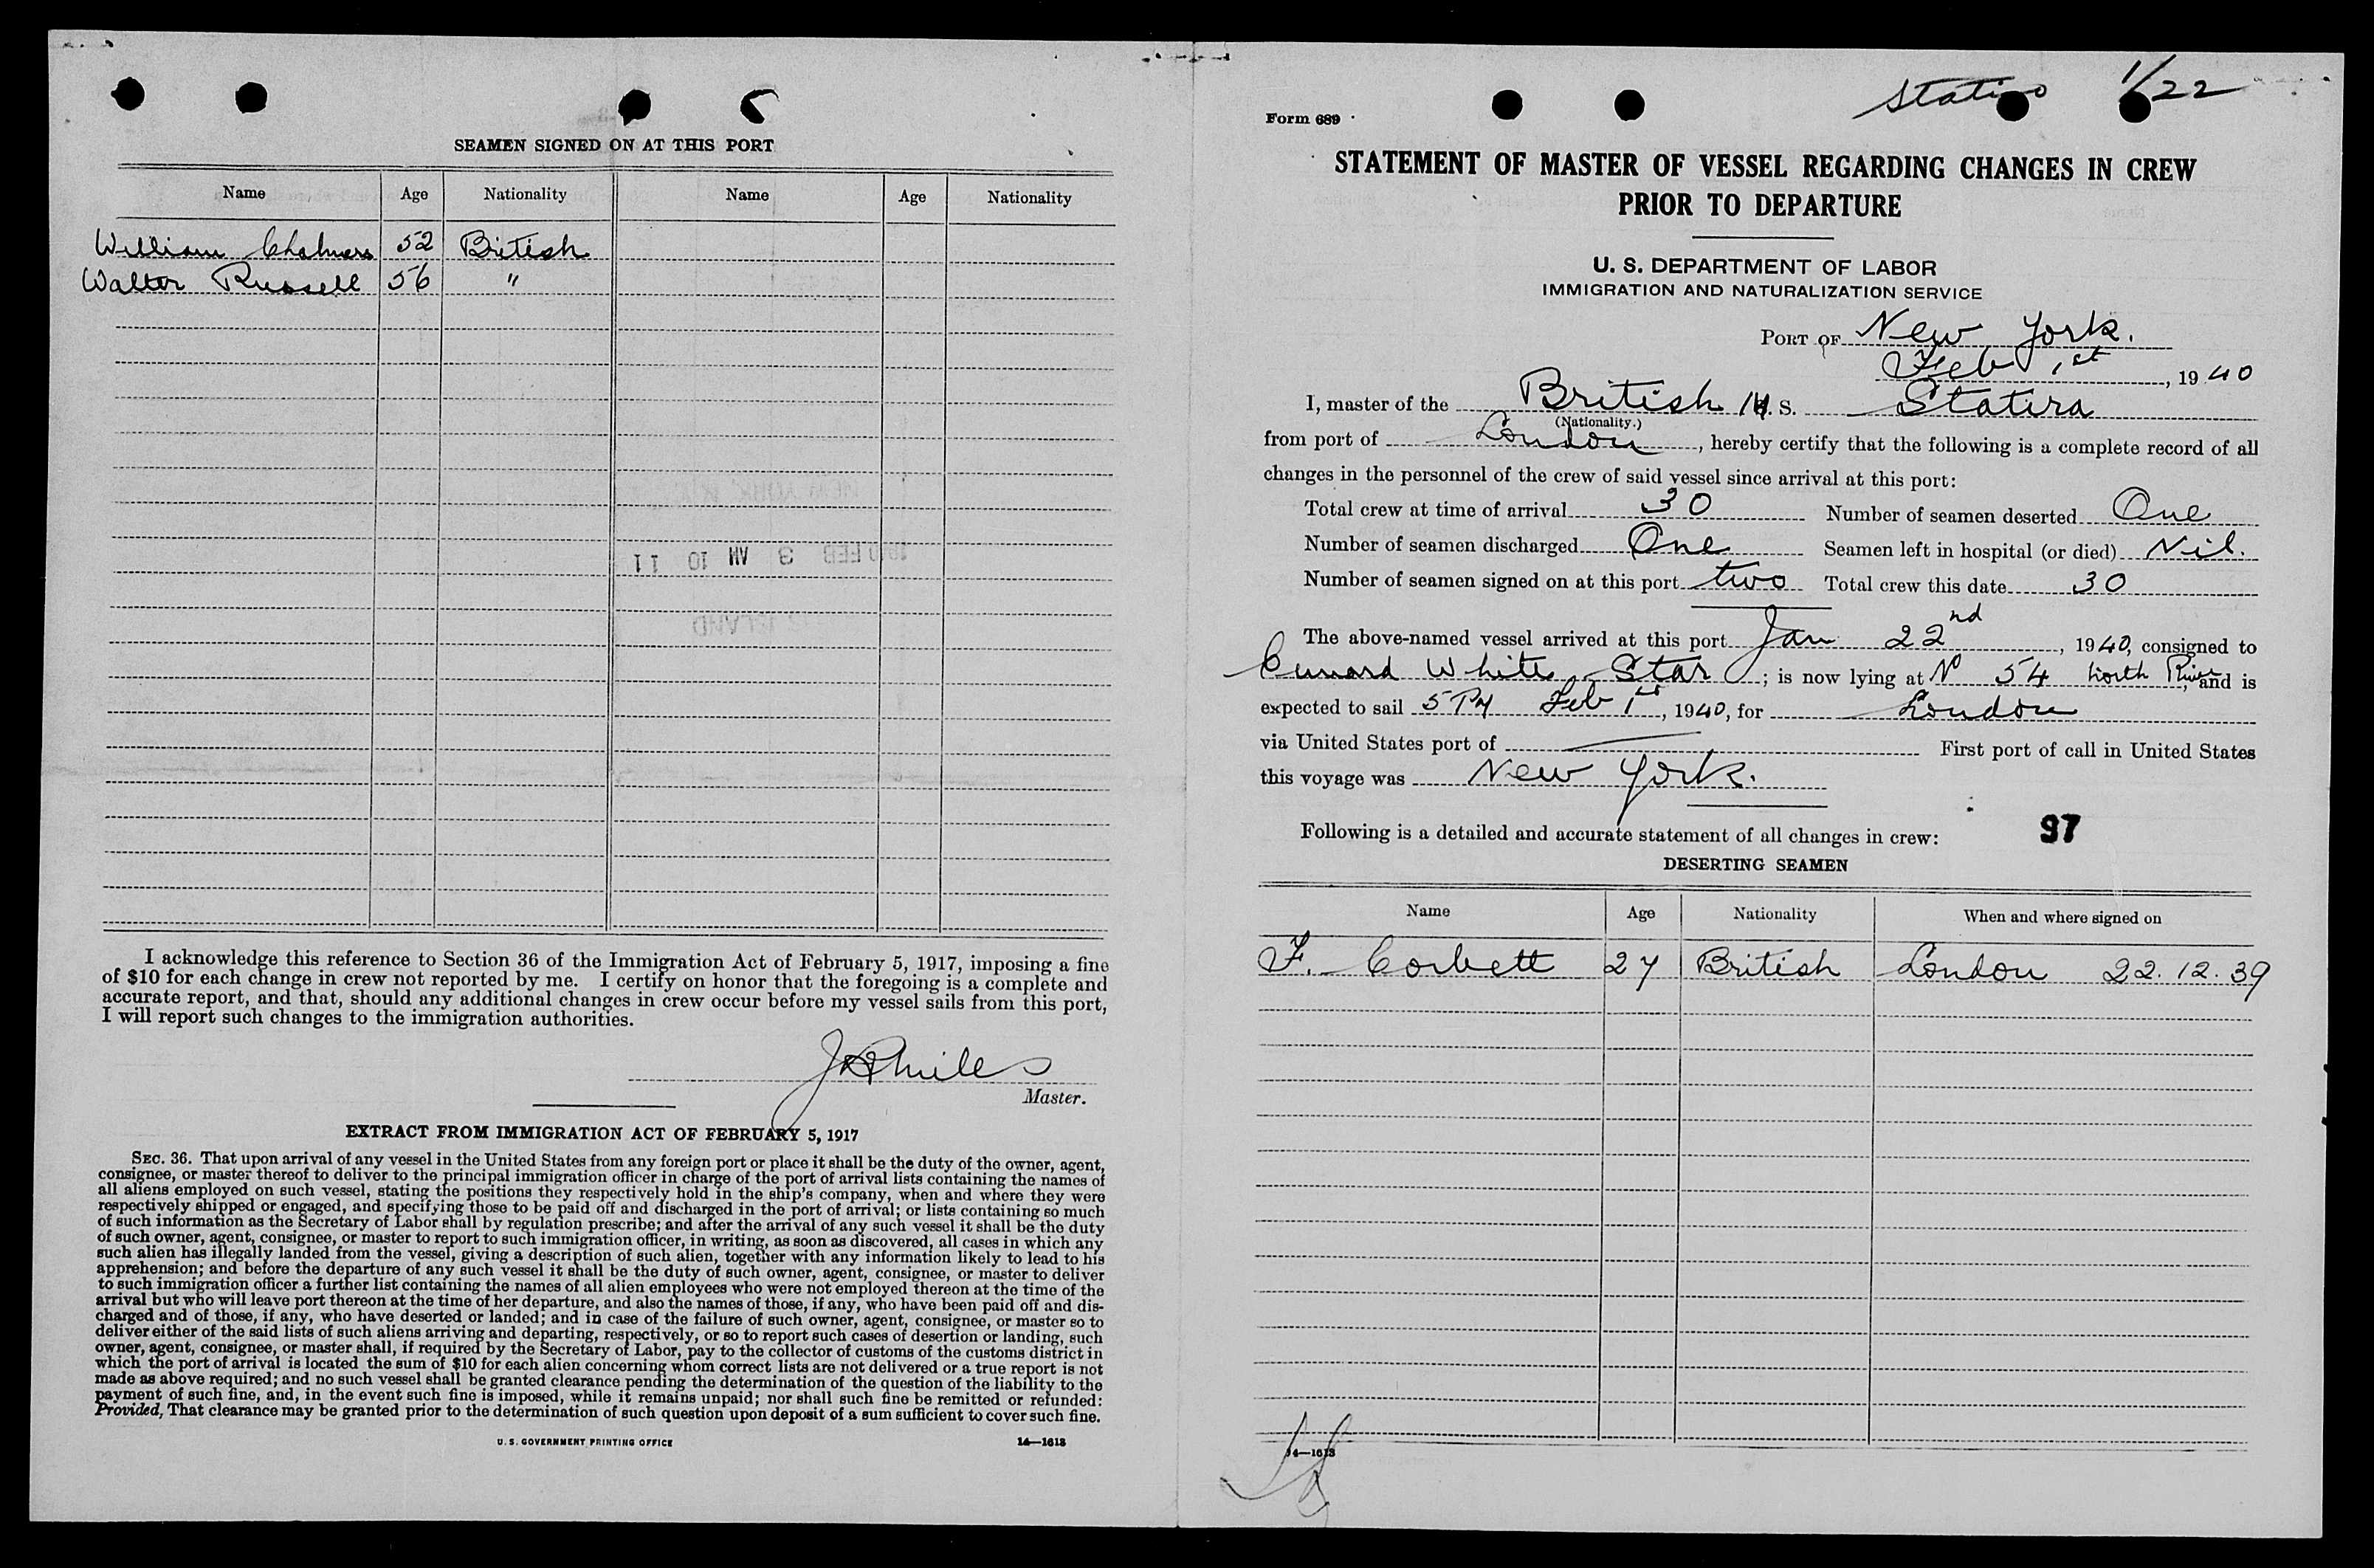 SEAMEN SIGNED ON AT THIS PORT
Name Age Nationality Name Age Nationality
William Chalmers 52 British
Walter Russell 56 "
1940 FEB 3 AM 10 11
I acknowledge this reference to Section 36 of the Immigration Act of February 5, 1917, imposing a fine
of $10 for each change in crew not reported by me. I certify on honor that the foregoing is a complete and
accurate report, and that, should any additional changes in crew occur before my vessel sails from this port,
I will report such changes to the immigration authorities.
Miles
Master.
EXTRACT FROM IMMIGRATION ACT OF FEBRUARY 5, 1917
SEC. 36. That upon arrival of any vessel in the United States from any foreign port or place it shall be the duty of the owner, agent,
consignee, or master thereof to deliver to the principal immigration officer in charge of the port of arrival lists containing the names of
all aliens employed on such vessel, stating the positions they respectively hold in the ship's company, when and where they were
respectively shipped or engaged, and specifying those to be paid off and discharged in the port of arrival; or lists containing so much
of such information as the Secretary of Labor shall by regulation prescribe; and after the arrival of any such vessel it shall be the duty
of such owner, agent, consignee, or master to report to such immigration officer, in writing, as soon as discovered, all cases in which any
such alien has illegally landed from the vessel, giving a description of such alien, together with any information likely to lead to his
apprehension; and before the departure of any such vessel it shall be the duty of such owner, agent, consignee, or master to deliver
to such immigration officer a further list containing the names of all alien employees who were not employed thereon at the time of the
arrival but who will leave port thereon at the time of her departure, and also the names of those, if any, who have been paid off and dis-
charged and of those, if any, who have deserted or landed; and in case of the failure of such owner, agent, consignee, or master so to
deliver either of the said lists of such aliens arriving and departing, respectively, or so to report such cases of desertion or landing, such
owner, agent, consignee, or master shall, if required by the Secretary of Labor, pay to the collector of customs of the customs district in
which the port of arrival is located the sum of $10 for each alien concerning whom correct lists are not delivered or a true report is not
made as above required; and no such vessel shall be granted clearance pending the determination of the question of the liability to the
payment of such fine, and, in the event such fine is imposed, while it remains unpaid; nor shall such fine be remitted or refunded:
Provided, That clearance may be granted prior to the determination of such question upon deposit of a sum sufficient to cover such fine.
U. S. GOVERNMENT PRINTING OFFICE 14—1613
1/22
Form 689
STATEMENT OF MASTER OF VESSEL REGARDING CHANGES IN CREW
PRIOR TO DEPARTURE
U. S. DEPARTMENT OF LABOR
IMMIGRATION AND NATURALIZATION SERVICE
PORT OF New York.
Feb 1st, 1940
I, master of the British M. S. Statira
(Nationality.)
from port of London, hereby certify that the following is a complete record of all
changes in the personnel of the crew of said vessel since arrival at this port:
Total crew at time of arrival 30 Number of seamen deserted One
Number of seamen discharged One Seamen left in hospital (or died) Nil.
Number of seamen signed on at this port two Total crew this date 30
The above-named vessel arrived at this port Jan 22nd, 1940, consigned to
Cunard White Star; is now lying at P 54 North River, and is
expected to sail 5 PM Feb 1st, 1940, for London
via United States port of — First port of call in United States
this voyage was New York.
Following is a detailed and accurate statement of all changes in crew: 97
DESERTING SEAMEN
Name Age Nationality When and where signed on
F. Corbett 27 British London 22.12.39
14—1613